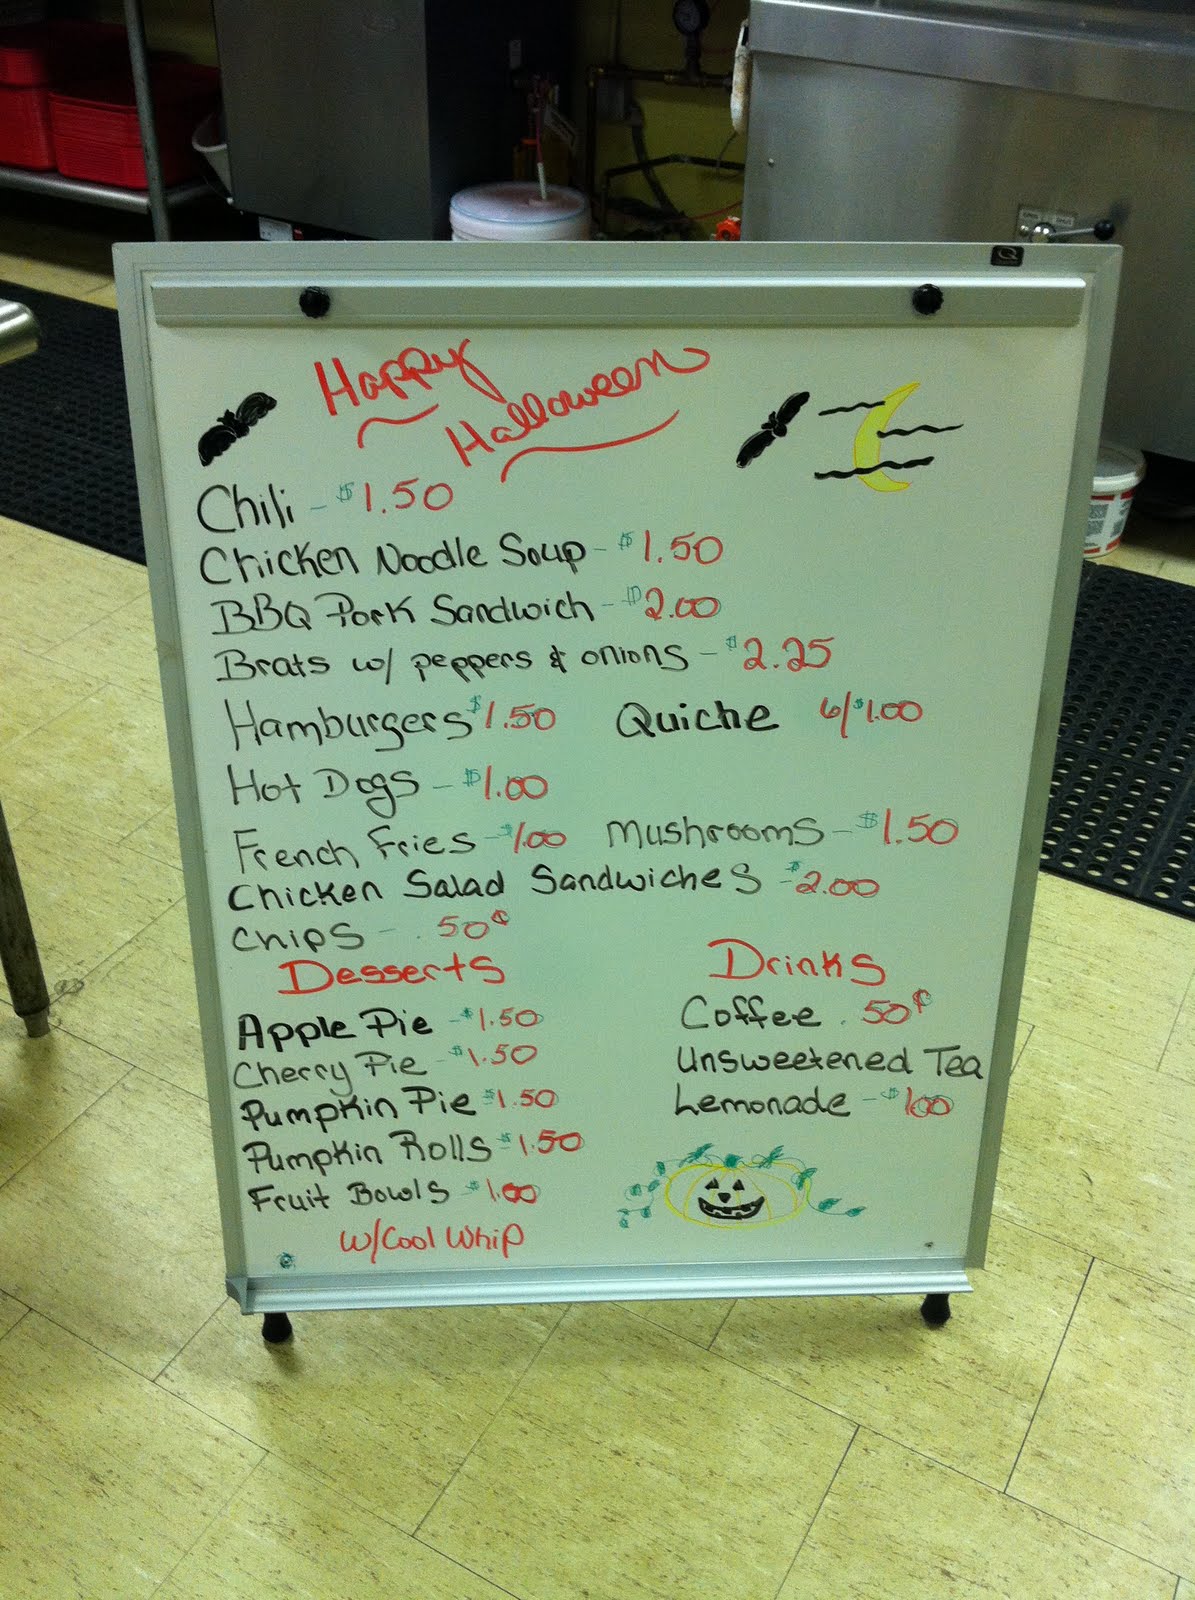 Happy
Halloween
Chili - $1.50
Chicken Noodle Soup - $1.50
BBQ Pork Sandwich - $2.00
Brats w/ peppers & onions - $2.25
Hamburgers $1.50 Quiche 6/$1.00
Hot Dogs - $1.00
French Fries - $1.00 Mushrooms - $1.50
Chicken Salad Sandwiches - $2.00
Chips - .50¢
Desserts
Apple Pie - $1.50
Cherry Pie - $1.50
Pumpkin Pie $1.50
Pumpkin Rolls - $1.50
Fruit Bowls - $1.00
w/Cool Whip
Drinks
Coffee .50¢
Unsweetened Tea
Lemonade - $1.00